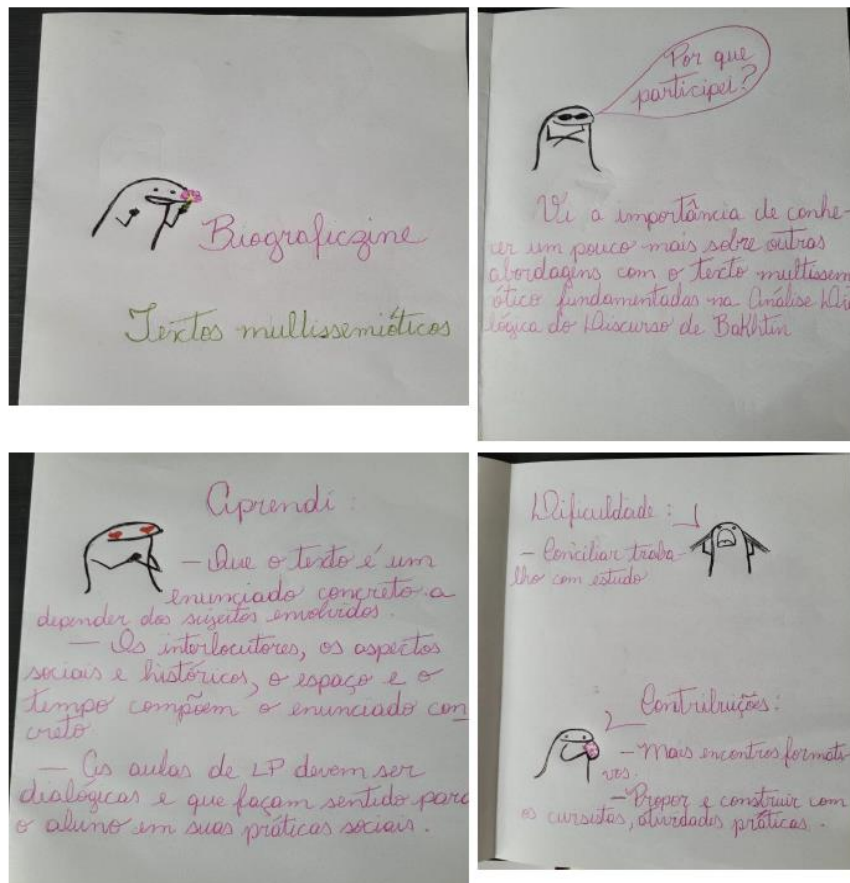 Biograficzine
Textos multissemióticos
Por que
participei?
Vi a importância de conhe-
cer um pouco mais sobre outras
abordagens com o texto multissem
iótico fundamentadas na Análise Dia
lógica do Discurso de Bakhtin
Aprendi:
— Que o texto é um
enunciado concreto a
depender dos sujeitos envolvidos.
— Os interlocutores, os aspectos
sociais e históricos, o espaço e o
tempo compõem o enunciado con
creto
— As aulas de LP devem ser
dialógicas e que façam sentido para
o aluno em suas práticas sociais.
Dificuldade:
— Conciliar traba-
lho com estudo
Contribuições:
— Mais encontros formati
vos.
— Propor e construir com
os cursistas, atividades práticas.